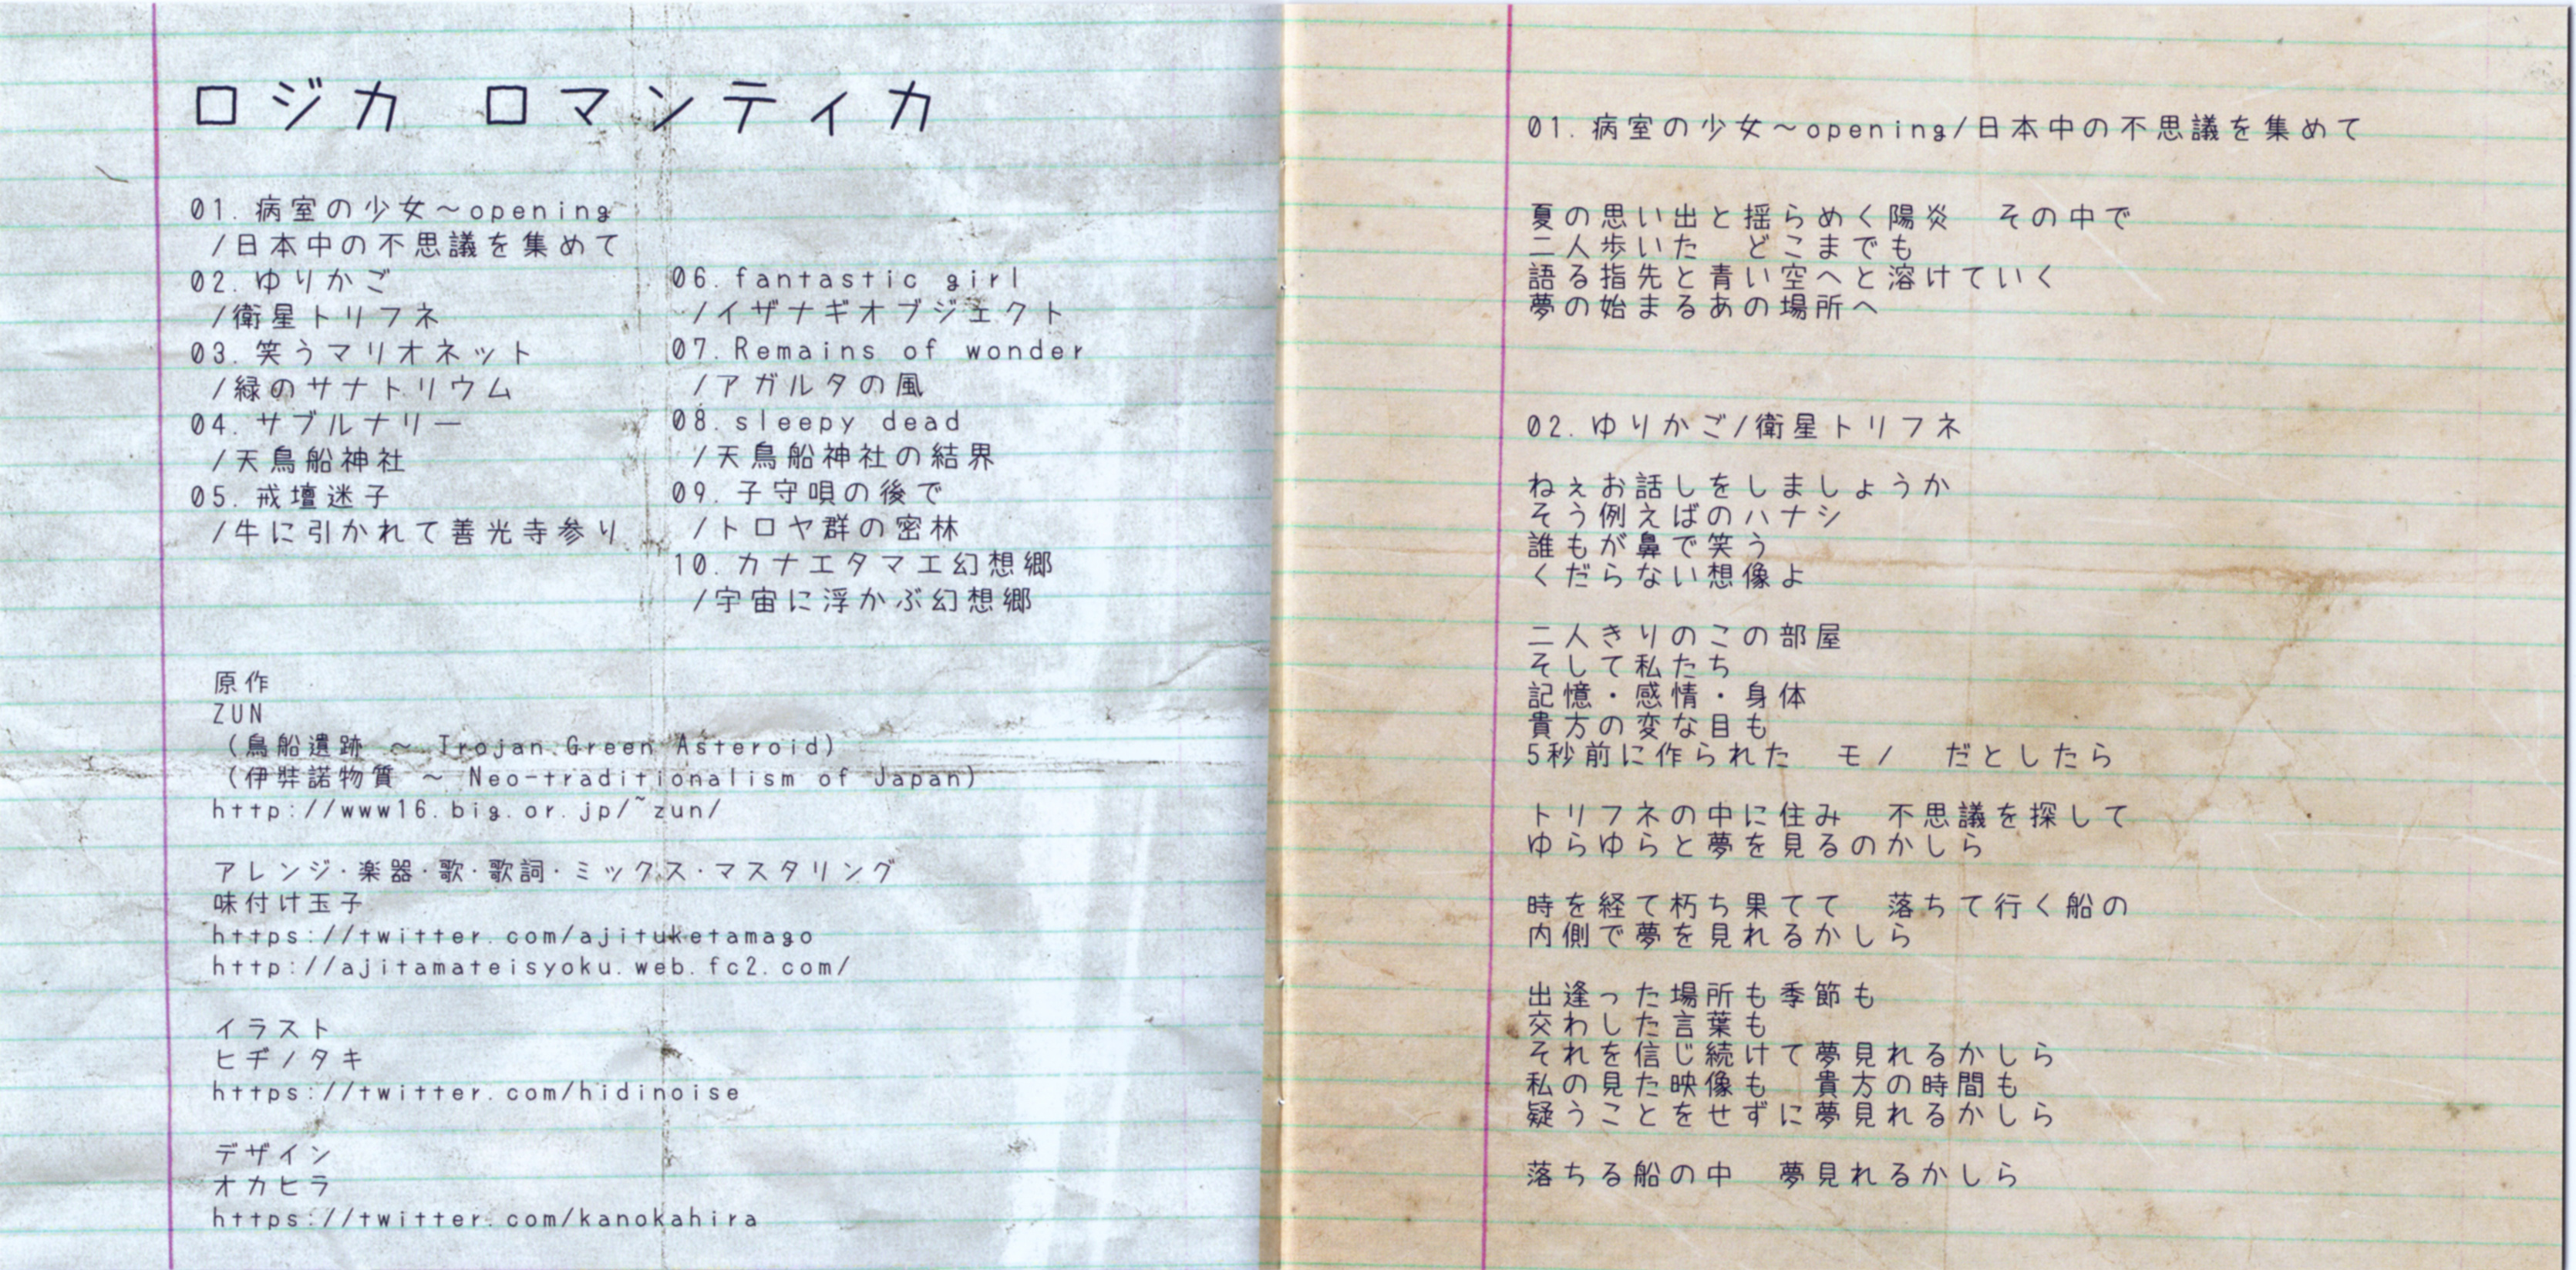 ロジカ ロマンティカ
01. 病室の少女～opening
/日本中の不思議を集めて
02. ゆりかご
/衛星トリフネ
03. 笑うマリオネット
/緑のサナトリウム
04. サブルナリー
/天鳥船神社
05. 戒壇迷子
/牛に引かれて善光寺参り
06. fantastic girl
/イザナギオブジェクト
07. Remains of wonder
/アガルタの風
08. sleepy dead
/天鳥船神社の結界
09. 子守唄の後で
/トロヤ群の密林
10. カナエタマエ幻想郷
/宇宙に浮かぶ幻想郷
原作
ZUN
(鳥船遺跡 ～ Trojan Green Asteroid)
(伊弉諾物質 ～ Neo-traditionalism of Japan)
http://www16.big.or.jp/~zun/
アレンジ・楽器・歌・歌詞・ミックス・マスタリング
味付け玉子
https://twitter.com/ajituketamago
http://ajitamateisyoku.web.fc2.com/
イラスト
ヒヂノタキ
https://twitter.com/hidinoise
デザイン
オカヒラ
https://twitter.com/kanokahira
01. 病室の少女～opening/日本中の不思議を集めて
夏の思い出と揺らめく陽炎　その中で
二人歩いた　どこまでも
語る指先と青い空へと溶けていく
夢の始まるあの場所へ
02. ゆりかご/衛星トリフネ
ねぇお話しをしましょうか
そう例えばのハナシ
誰もが鼻で笑う
くだらない想像よ
二人きりのこの部屋
そして私たち
記憶・感情・身体
貴方の変な目も
5秒前に作られた　モノ　だとしたら
トリフネの中に住み　不思議を探して
ゆらゆらと夢を見るのかしら
時を経て朽ち果てて　落ちて行く船の
内側で夢を見れるかしら
出逢った場所も季節も
交わした言葉も
それを信じ続けて夢見れるかしら
私の見た映像も　貴方の時間も
疑うことをせずに夢見れるかしら
落ちる船の中　夢見れるかしら